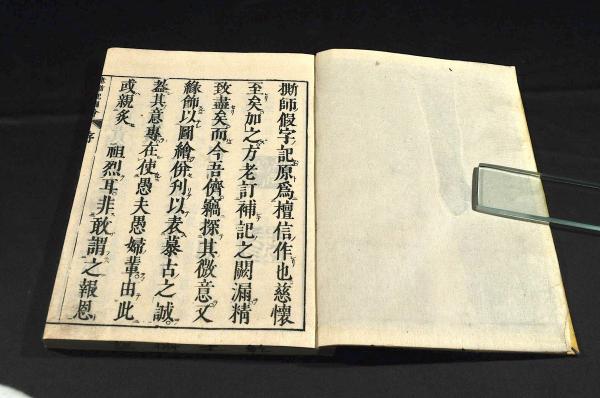 撕師假字記原爲檀信作也慈懷
至矣加之方老訂補記之闕漏精
致盡矣而今吾儕竊探其微意文
緣飾以圖繪併刊以表慕古之誠
葢其意專在使愚夫愚婦輩由此
或親炙 祖烈耳非敢謂之報恩
序